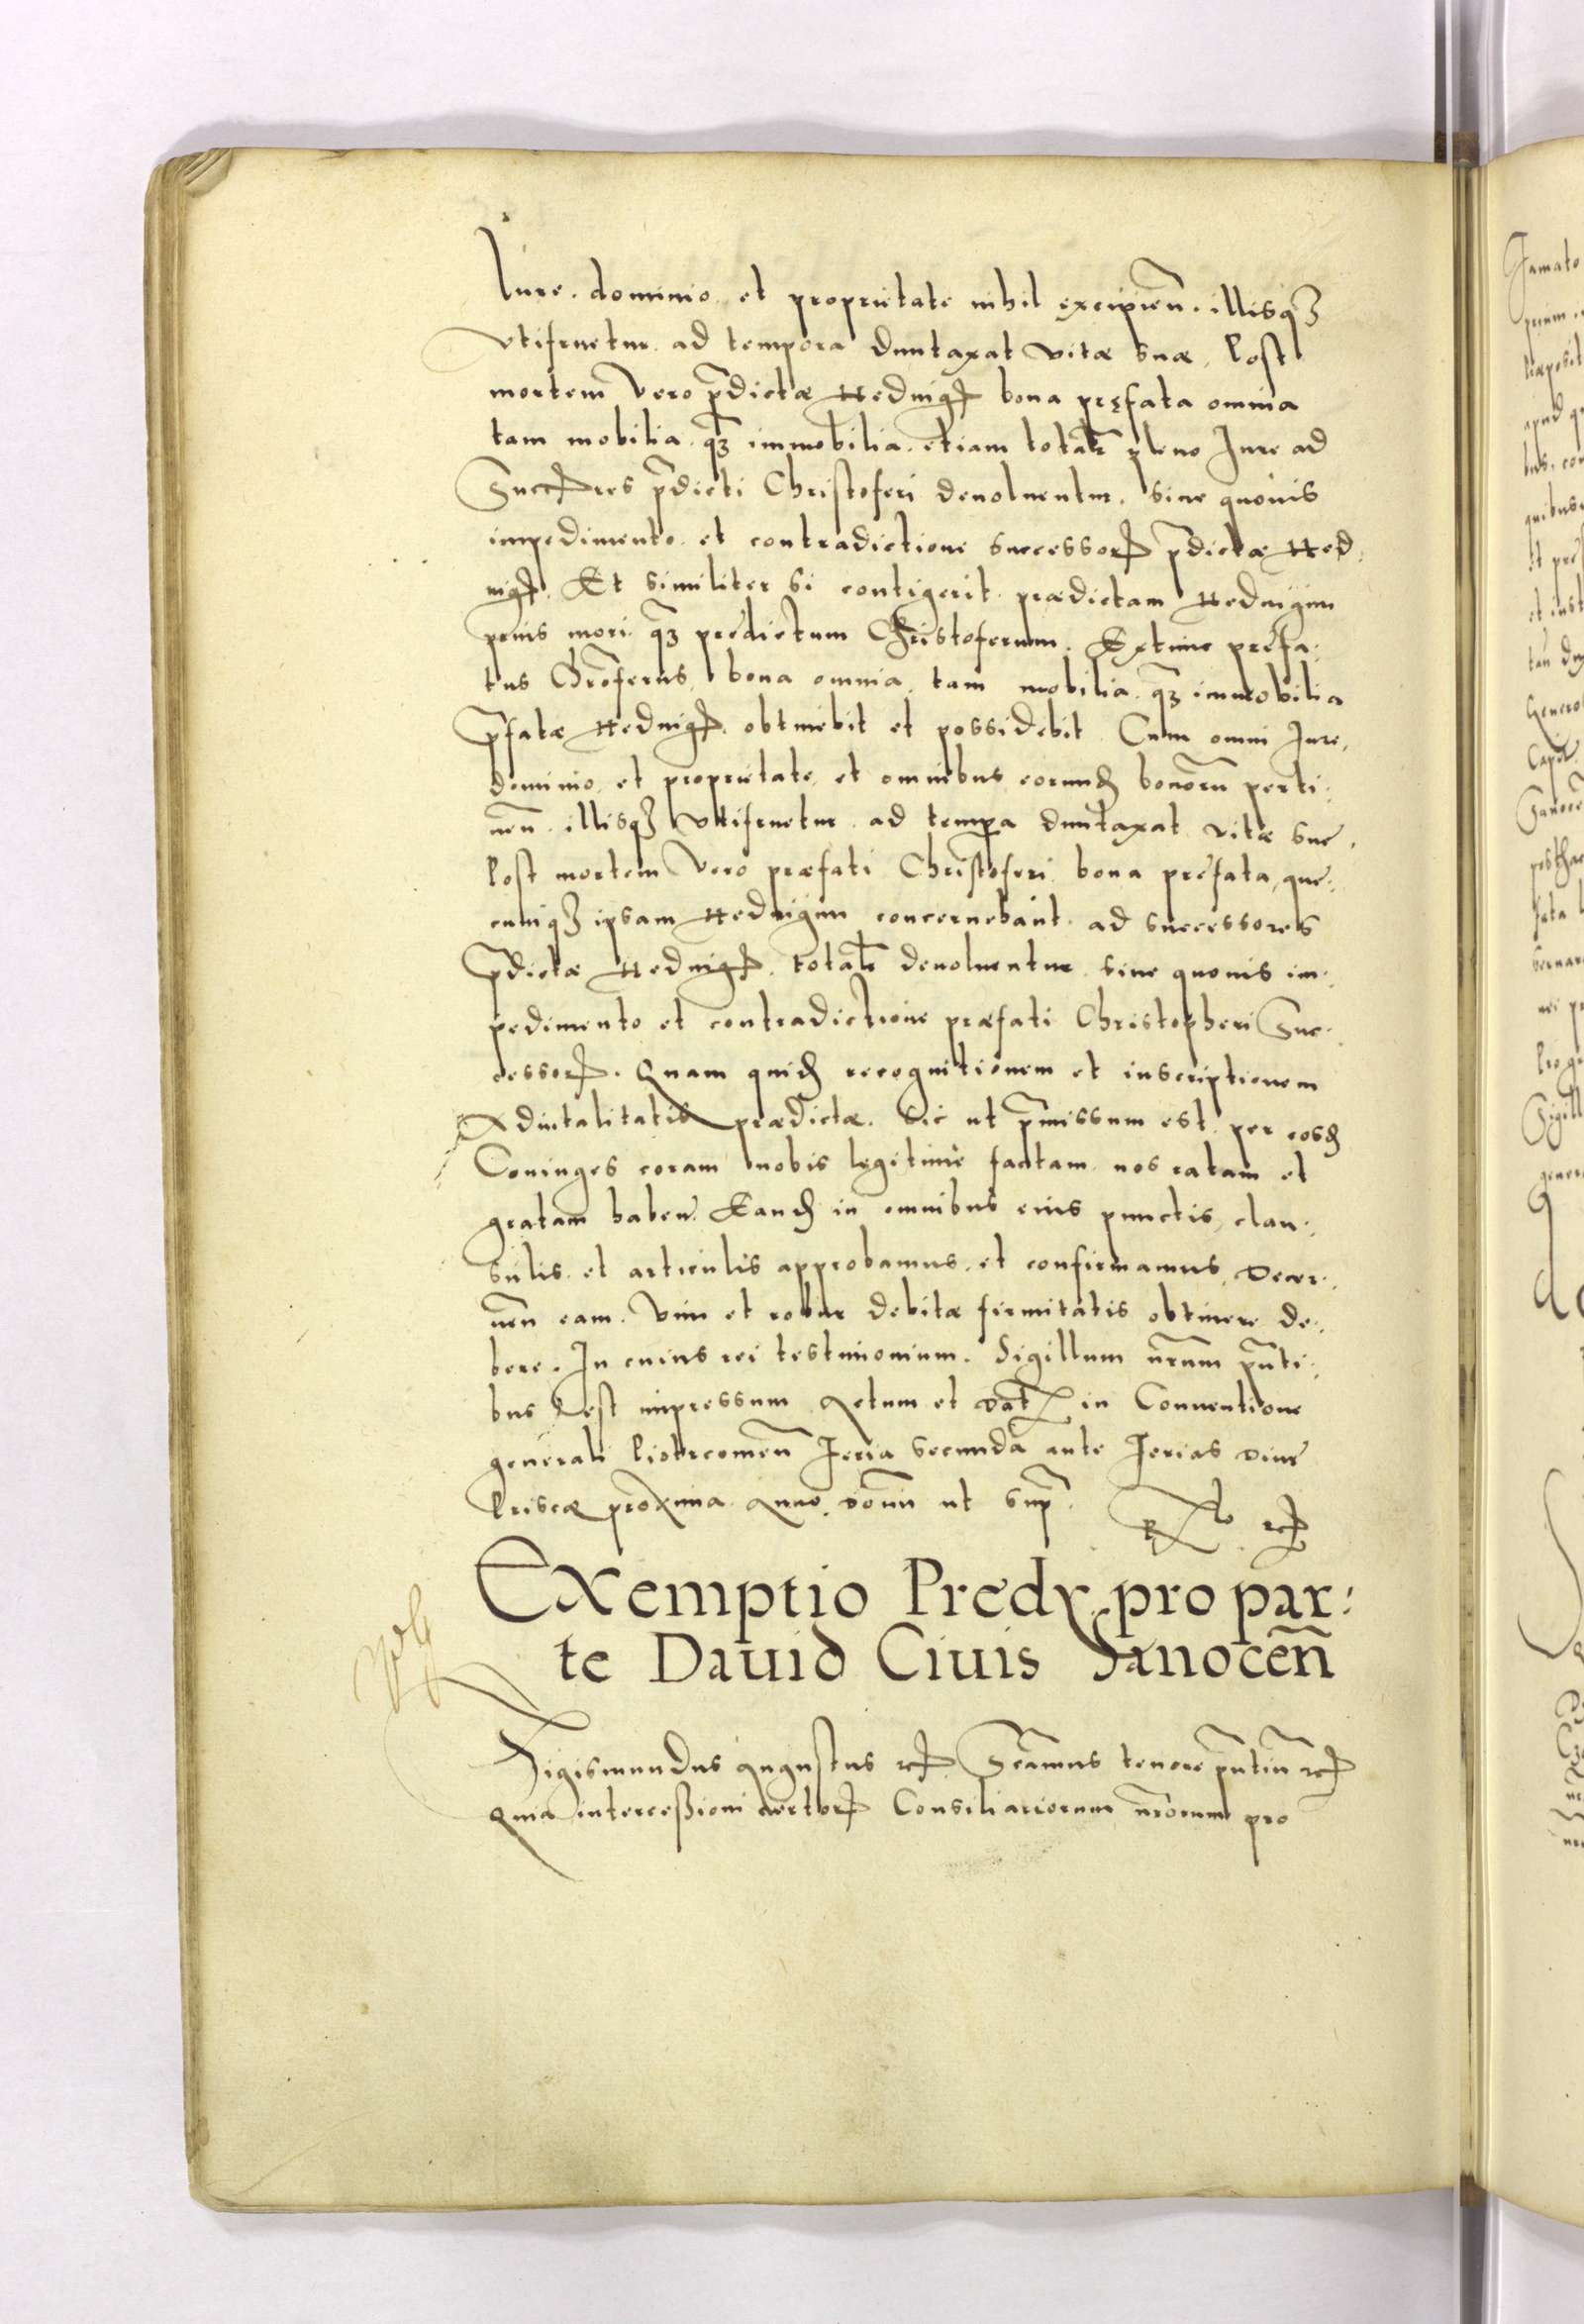 Iure. dominio. et proprietate nihil excipien̄. illisqꝫ
Vtifruetur. ad tempora duntaxat vitæ suæ. Post
mortem Vero p̄dictæ Heduigꝭ bona pręfata omnia
tam mobilia. qꝫ immobilia. etiam totalr̄ pleno Iure ad
Succꝭres p̄dicti Christoferi deuoluentur. sine quouis
impedimento. et contradictione successorꝭ p̄dictæ Hed:
uigꝭ. Et similiter si contigerit. prædictam Heduigim
prius mori. qꝫ predictum Christoferum. Extunc prefa:
tus Chrōferus, bona omnia. tam mobilia. qꝫ immobilia
p̄fatæ Heduigꝭ. obtinebit et possidebit. Cum omni Iure,
dominio. et proprietate, et omnibus eorund̄ bonorū perti:
nen̄. illisqꝫ Vtifruetur. ad tempora duntaxat vitæ sue.
Post mortem Vero præfati Christoferi bona prefata, que:
cunqꝫ ipsam Heduigim concernebant. ad successores
p̄dictæ Heduigꝭ. totalr̄ deuoluentur. sine quouis im:
pedimento et contradictione præfati Christopheri Suc:
cessorꝭ. Quam quid̄ recognitionem et inscriptionem
Aduitalitatis prædictæ. Sic ut p̄missum est. per eosd̄
Coniuges coram nobis legitime factam. nos ratam et
gratam haben̄. Eand̄ in omnibus eius punctis, clau:
sulis. et articulis approbamus. et confirmamus, Decer:
nen̄ eam. Vim et robur debitæ firmitatis obtinere de:
bere. In cuius rei testimonium. Sigillum nr̄um pn̄ti:
bus est impressum. Actum et Dat in Conuentione
generali Piotrcouien̄ Feria secunda ante Ferias Diue
Priscæ proxima. Anno. Domi ut supͣ. Rꝭ rcꝭ
Exemptio Predy pro par:
te Dauid Ciuis Sanoceñ
Sigismundus Augustus rcꝭ. Sc̄amus tenore pn̄tiū rcꝭ
Quia intercessioni certorꝭ Consiliariorum nr̄orum pro